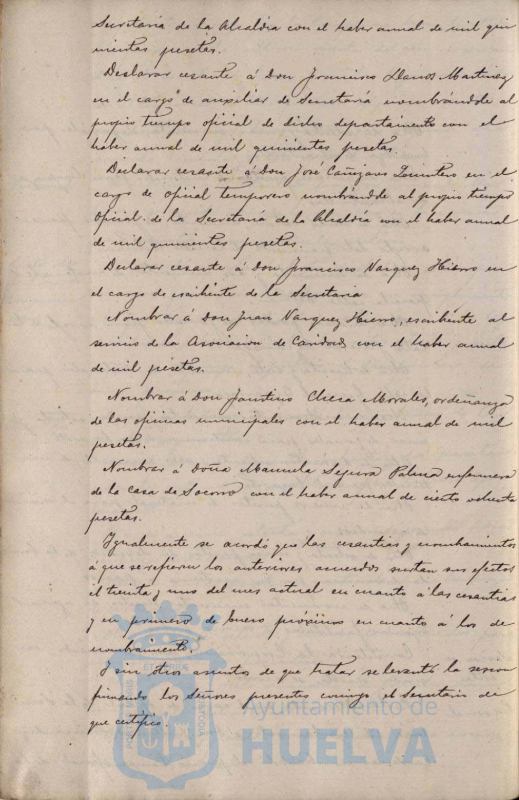 Secretaría de la Alcaldía con el haber anual de mil qui
nientas pesetas.
Declarar cesante á Don Francisco Llanos Martinez
en el cargo de auxiliar de Secretaría nombrándole al
propio tiempo oficial de dicho departamento con el
haber anual de mil quinientas pesetas.
Declarar cesante á Don José Cañizares Quintero en el
cargo de oficial temporero nombrándole al propio tiempo
Oficial de la Secretaría de la Alcaldía con el haber anual
de mil quinientas pesetas.
Declarar cesante á Don Francisco Vazquez Hierro en
el cargo de escribiente de la Secretaria
Nombrar á Don Juan Vazquez Hierro, escribiente al
servicio de la Asociacion de Caridad, con el haber anual
de mil pesetas.
Nombrar á Don Faustino Checa Morales, ordenanza
de las oficinas municipales con el haber anual de mil
pesetas.
Nombrar á Doña Manuela Segura Palma enfermera
de la Casa de Socorro con el haber anual de ciento
pesetas.
Igualmente se acordó que las cesantias y nombramientos
á que se refieren los anteriores acuerdos surtan sus efectos
el treinta y uno del mes actual en cuanto á las cesantias
y en primero de Enero próximo en cuanto á los de
nombramiento.
Y sin otros asuntos de que tratar se levantó la sesion
firmando los Señores presentes conmigo el Secretario de
que certifico.
Ayuntamiento de
HUELVA